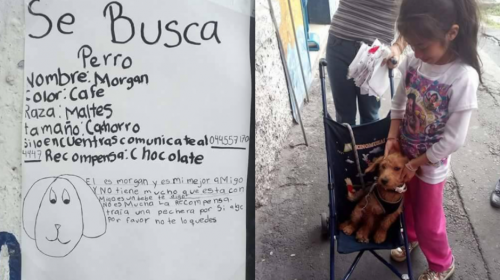 Se Busca
Perro
Nombre: Morgan
Color: Cafe
Raza: Maltes
tamaño: Cachorro
Si lo encuentras comunicate al 044557170
4447 Recompensa: Chocolate
El es morgan y es mi mejor amigo
Y NO tiene mucho que esta con
migo es un bebe te digo
NO es Mucha la Recompensa
traia una pechera por Si
Por favor no te lo quedes